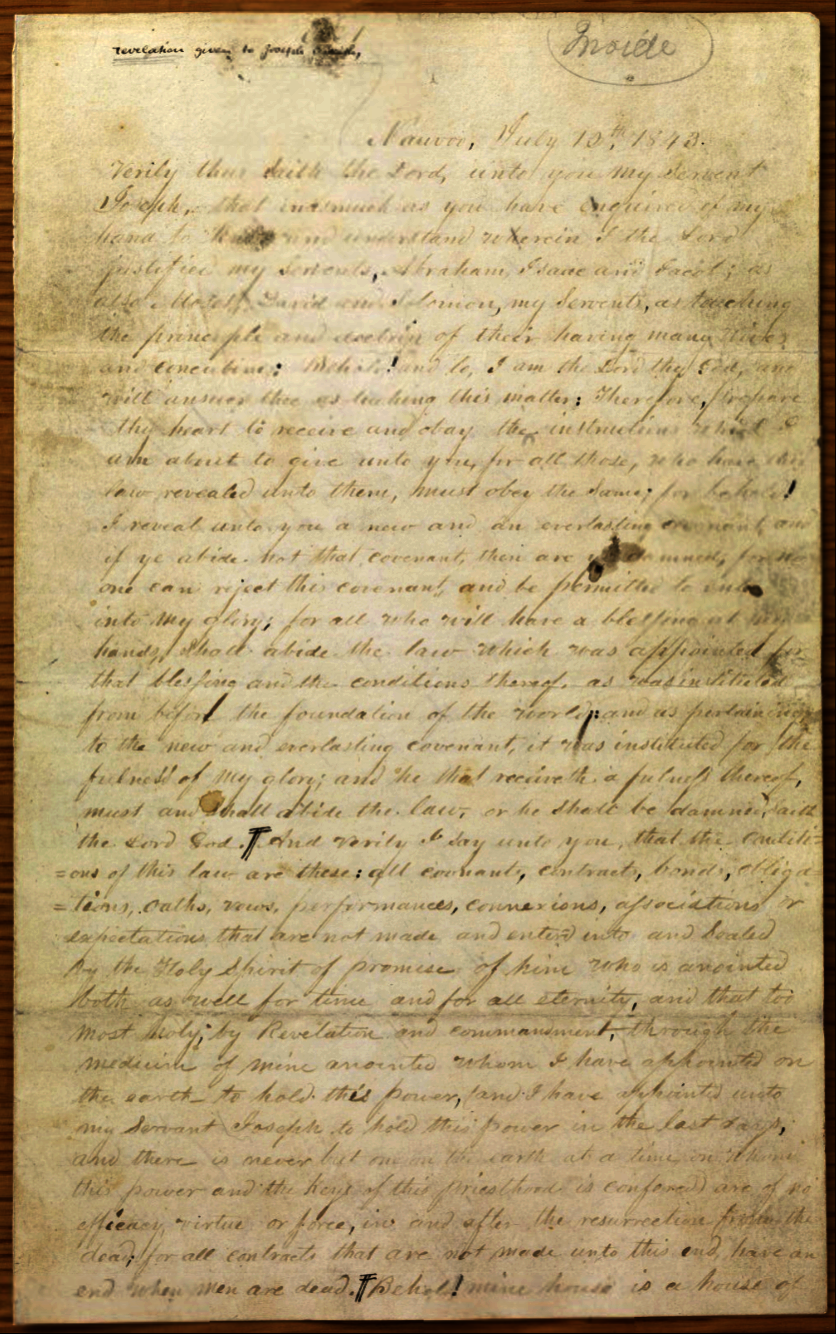 revelation given to Joseph Smith,
Inside
Nauvoo, July 12th, 1843.
Verily thus saith the Lord, unto you my Servent
Joseph, that inasmuch as you have enquired of my
hand to know and understand wherein I the Lord
justified my Servents, Abraham, Isaac and Jacob; as
also Moses, David and Solomon, my Servents, as touching
the principle and doctrin of their having many Wives
and concubines: Behold! and lo, I am the Lord thy God, and
will answer thee as touching this matter: Therefore, prepare
thy heart to receive and obey the instructions which I
am about to give unto you, for all those, who have this
law revealed unto them, must obey the same; for behold!
I reveal unto you a new and an everlasting covenant, and
if ye abide not that covenant, then are ye damned; for no
one can reject this covenant, and be permitted to enter
into my glory; for all who will have a blessing at my
hands, shall abide the law which was appointed for
that blessing and the conditions thereof, as was instituted
from before the foundation of the world: and as pertaining
to the new and everlasting covenant, it was instituted for the
fulness of my glory; and he that receiveth a fulness thereof,
must and shall abide the law, or he shall be damned, saith
the Lord God. ¶ And verily I say unto you, that the conditi=
=ons of this law are these: all covenants, contracts, bonds, obliga=
=tions, oaths, vows, performances, connexions, associations or
expectations that are not made and entered into and sealed
by the Holy Spirit of promise of him who is anointed
both as well for time and for all eternity, and that too
most holy, by Revelation and commandment, through the
medium of mine anointed whom I have appointed on
the earth to hold this power, (and I have appointed unto
my Servant Joseph to hold this power in the last days,
and there is never but one on the earth at a time on whom
this power and the keys of this priesthood is confered) are of no
efficacy, virtue or force, in and after the resurrection from the
dead; for all contracts that are not made unto this end, have an
end when men are dead. ¶ Behold! mine house is a house of